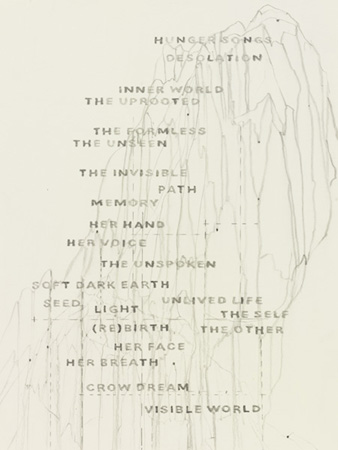 HUNGER SONGS
DESOLATION
INNER WORLD
THE UPROOTED
THE FORMLESS
THE UNSEEN
THE INVISIBLE
PATH
MEMORY
HER HAND
HER VOICE
THE UNSPOKEN
SOFT DARK EARTH
SEED
UNLIVED LIFE
LIGHT
THE SELF
(RE)BIRTH
THE OTHER
HER FACE
HER BREATH
CROW DREAM
VISIBLE WORLD